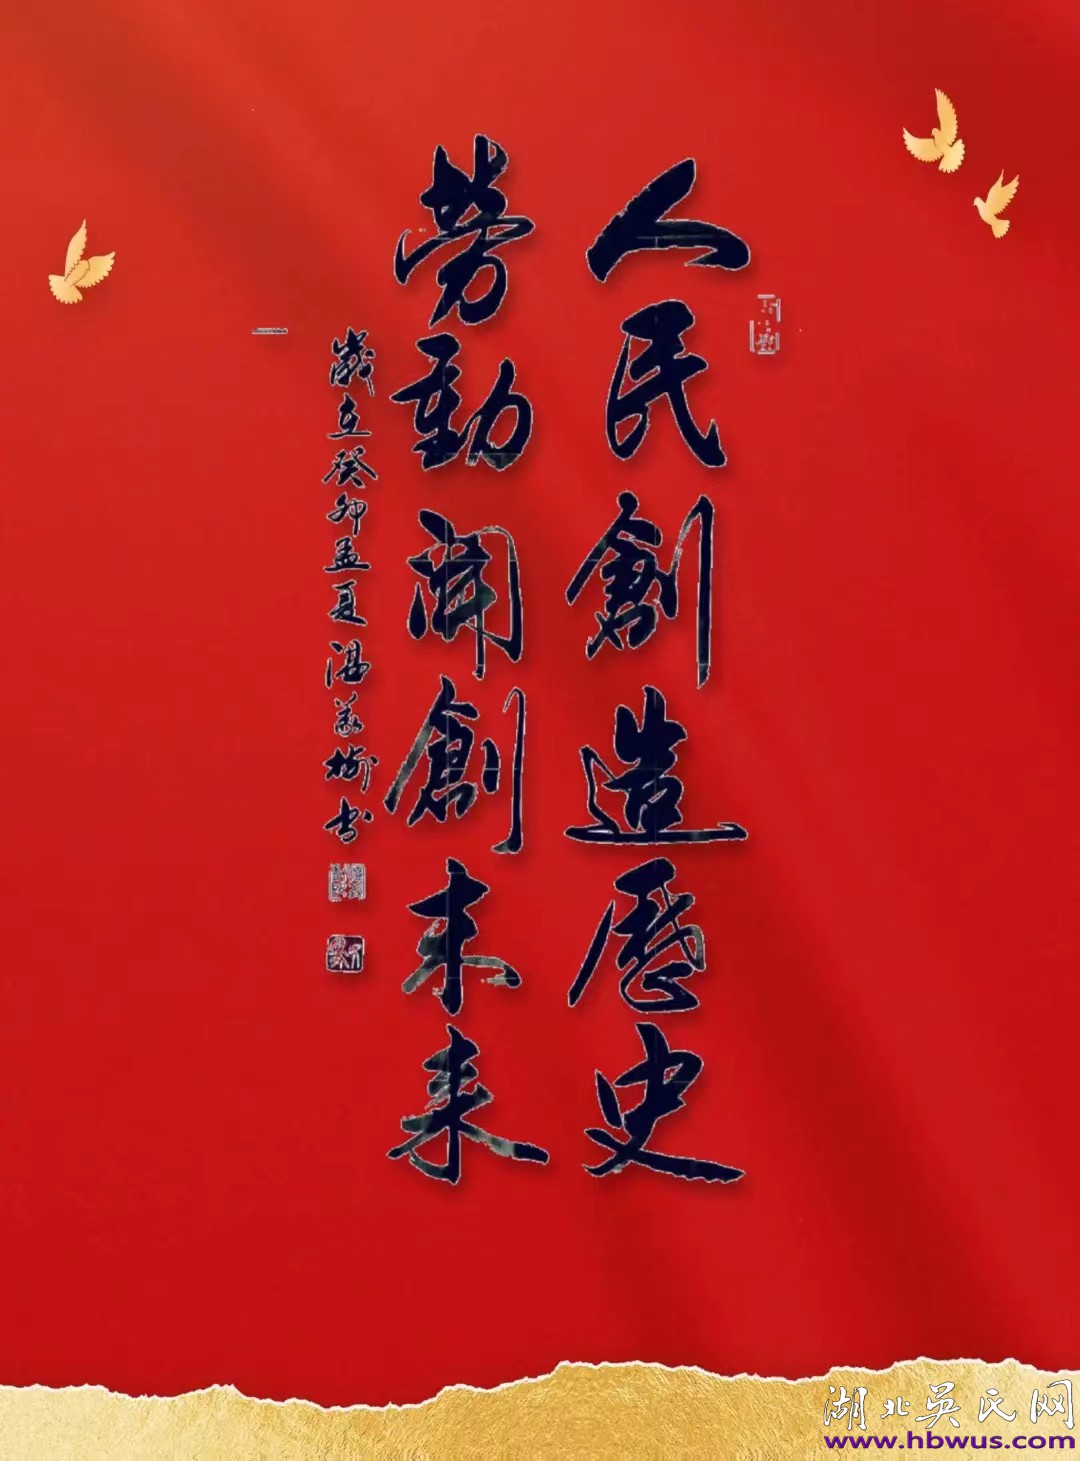 人民創造歷史
勞動開創未来
歲在癸卯孟夏
湖北吳氏网
www.hbwus.com